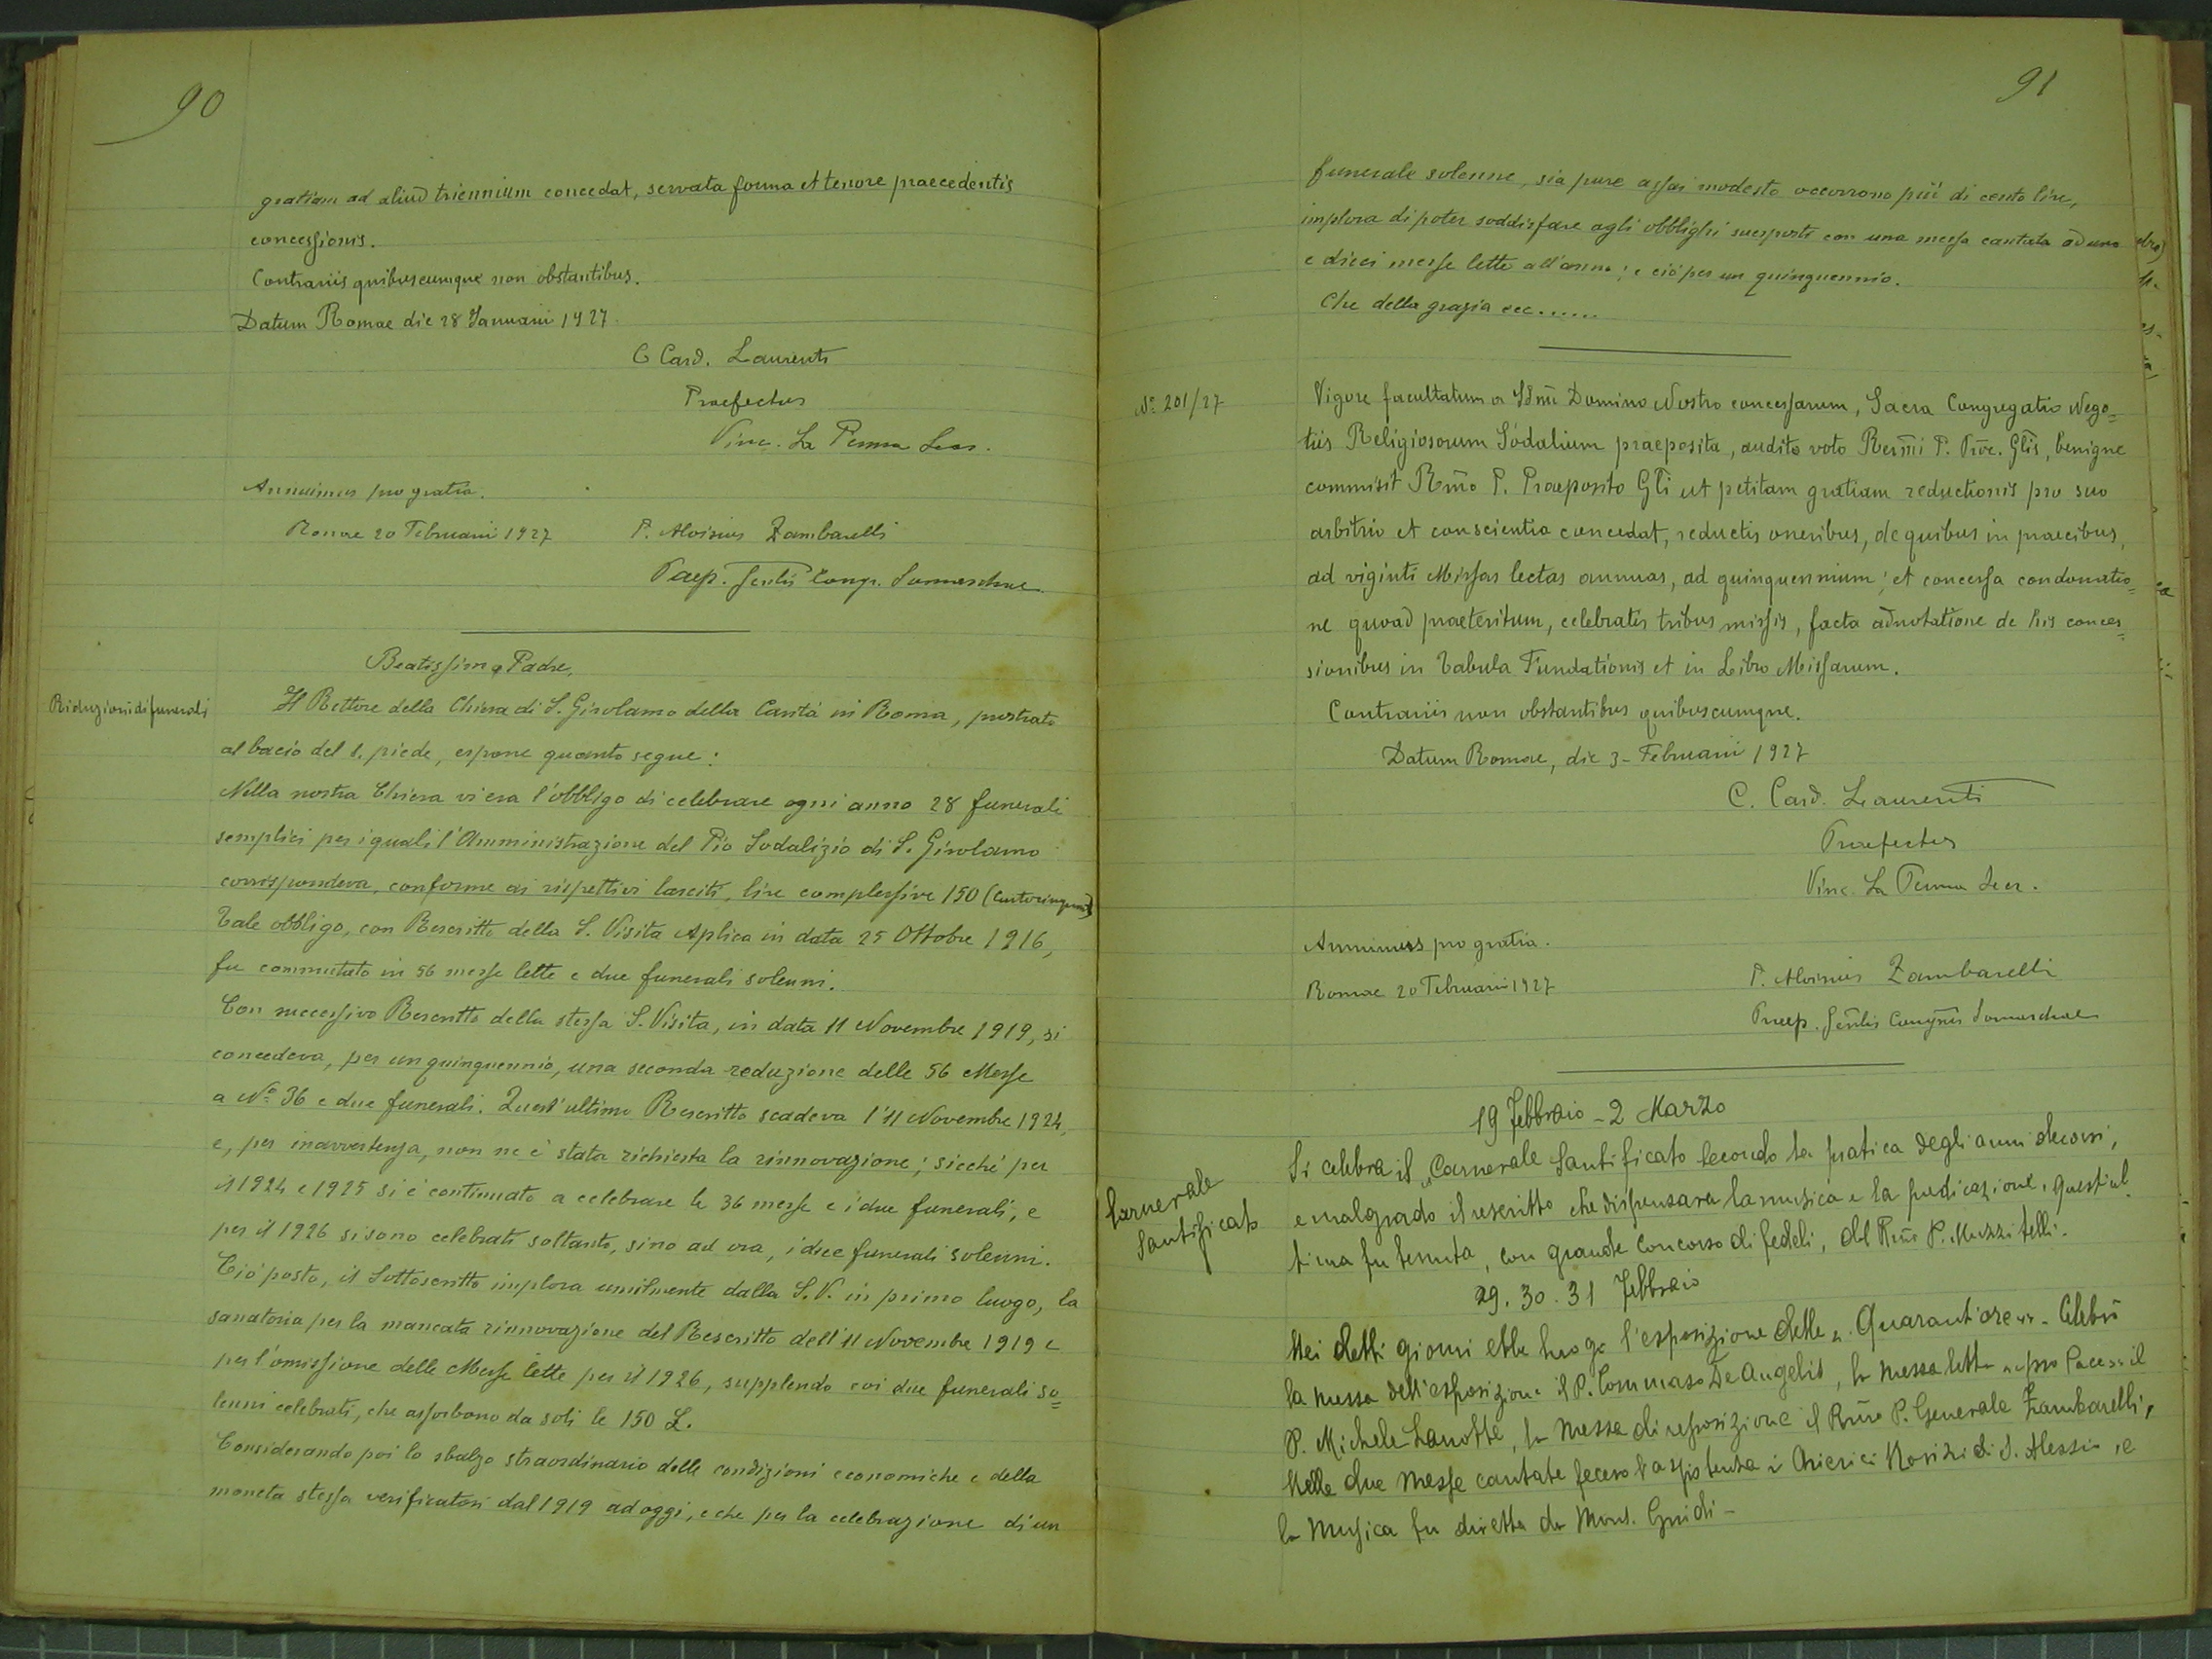 90
gratiam ad aliud triennium concedat, servata forma et tenore praecedentis
concessionis.
Contrariis quibuscumque non obstantibus.
Datum Romae die 28 Januarii 1927.
C Card. Laurenti
Praefectus
Vinc. La Puma Secr.
Annuimus pro gratia.
Romae 20 Februarii 1927 P. Aloisius Zambarelli
Praep. Genlis Congr. Somaschae
Beatissimo Padre,
Riduzioni di funerali
Il Rettore della Chiesa di S. Girolamo della Carità in Roma, prostrato
al bacio del S. piede, espone quanto segue:
Nella nostra Chiesa vi era l'obbligo di celebrare ogni anno 28 funerali
semplici per i quali l'Amministrazione del Pio Sodalizio di S. Girolamo
corrispondeva, conforme ai rispettivi lasciti, lire complessive 150 (centocinquanta)
Tale obbligo, con Rescritto della S. Visita Aplica in data 25 Ottobre 1916,
fu commutato in 56 messe lette e due funerali solenni.
Con successivo Rescritto della stessa S. Visita, in data 11 Novembre 1919, si
concedeva, per un quinquennio, una seconda reduzione delle 56 Messe
a No 36 e due funerali. Quest'ultimo Rescritto scadeva l'11 Novembre 1924,
e, per inavvertenza, non ne è stata richiesta la rinnovazione; sicché per
il 1924 e 1925 si è continuato a celebrare le 36 messe e i due funerali, e
per il 1926 si sono celebrati soltanto, sino ad ora, i due funerali solenni.
Ciò posto, il Sottoscritto implora umilmente dalla S. V. in primo luogo, la
sanatoria per la mancata rinnovazione del Rescritto dell'11 Novembre 1919 e
per l'omissione delle Messe lette per il 1926, supplendo coi due funerali so=
lenni celebrati, che assorbono da soli le 150 L.
Considerando poi lo sbalzo straordinario delle condizioni economiche e della
moneta stessa verificatosi dal 1919 ad oggi, e che per la celebrazione di un
91
funerale solenne, sia pure assai modesto occorrono più di cento lire,
implora di poter soddisfare agli obblighi suesposti con una messa cantata ad uno
e dieci messe lette all'anno; e ciò per un quinquennio.
Che della grazia ecc......
No 201/27
Vigore facultatum a SSmo Domino Nostro concessarum, Sacra Congregatio Nego=
tiis Religiosorum Sodalium praeposita, audito voto Revmi P. Proc. Glis, benigne
commisit Rmo P. Praeposito Gli ut petitam gratiam reductionis pro suo
arbitrio et conscientia concedat, reductis oneribus, de quibus in praecibus,
ad viginti Missas lectas annuas, ad quinquennium; et concessa condonatio=
ne quoad praeteritum, celebratis tribus missis, facta adnotatione de his conces=
sionibus in Tabula Fundationis et in Libro Missarum.
Contrariis non obstantibus quibuscumque.
Datum Romae, die 3- Februarii 1927
C. Card. Laurenti
Praefectus
Vinc. La Puma Secr.
Annuimus pro gratia.
Romae 20 Februarii 1927 P. Aloisius Zambarelli
Praep. Genlis Congnis Somaschae
19 Febbraio - 2 Marzo
Carnevale
Santificato
Si celebra il „Carnevale Santificato secondo la pratica degli anni decorsi,
e malgrado il rescritto che dispensava la musica e la predicazione, quest'ul
tima fu tenuta, con grande concorso di fedeli, dal Rmo P. Muzzitelli.
29. 30. 31 Febbraio
Nei detti giorni ebbe luogo l'esposizione delle „ Quarantore " - Celebrò
la messa dell'esposizione il P. Tommaso De Angelis, la messa letta pro Pace il
P. Michele Lanotte, la messa di reposizione il Rmo P. Generale Zambarelli,
Nelle due messe cantate fecero l'assistenza i Chierici Novizi di S. Alessio, e
la Musica fu diretta da Mons. Guidi -